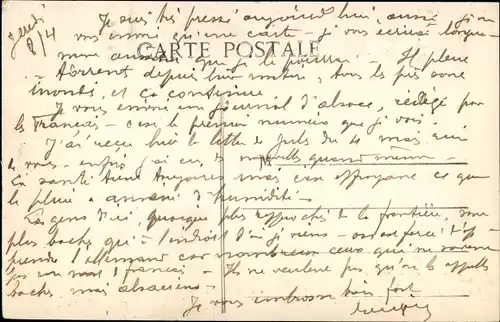 Jeudi
8/4
Je suis très pressé aujourd'hui, aussi je ne
vous envoi qu'une carte - je vous écrirai longue-
CARTE POSTALE
ment aussitôt que je le pourrai - Il pleut
à torrent depuis hier matin, tous les prés sont
inondés, et ça continue
Je vous envoi un journal d'alsace, rédigé par
les Français - c'est le premier numéro que je vois.
J'ai reçu hier la lettre de du 4 mars
de vous - enfin j'ai eu de nouvelles quand même -
La santé tient toujours mais c'est effroyable ce que
la pluie a amené d'humidité -
Les gens d'ici, quoique plus rapprochés de la frontière, sont
plus boches qu'à l'endroit d'où je viens - on est forcé d'ap-
prendre l'allemand car nombreux ceux qui ne savent
pas un mot français - Ils ne veulent pas qu'on les appelle
boches mais alsaciens -
Je vous embrasse bien fort